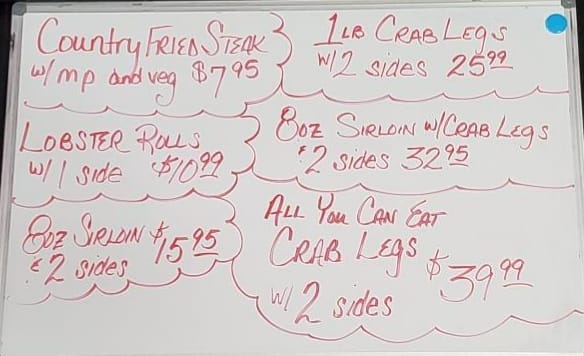 Country Fried Steak
w/ mp and veg $7.95
1 LB Crab Legs
w/ 2 sides 25.99
Lobster Rolls
w/ 1 side $10.99
8oz Sirloin w/ Crab Legs
& 2 sides 32.95
8oz Sirloin $15.95
& 2 sides
All You Can Eat
Crab Legs $39.99
w/ 2 sides